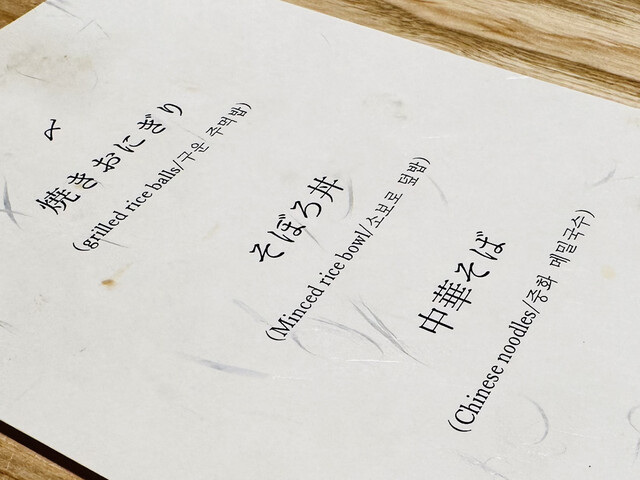 〆
焼きおにぎり
(grilled rice balls/구운 주먹밥)
そぼろ丼
(Minced rice bowl/소보로 덮밥)
中華そば
(Chinese noodles/중화 메밀국수)